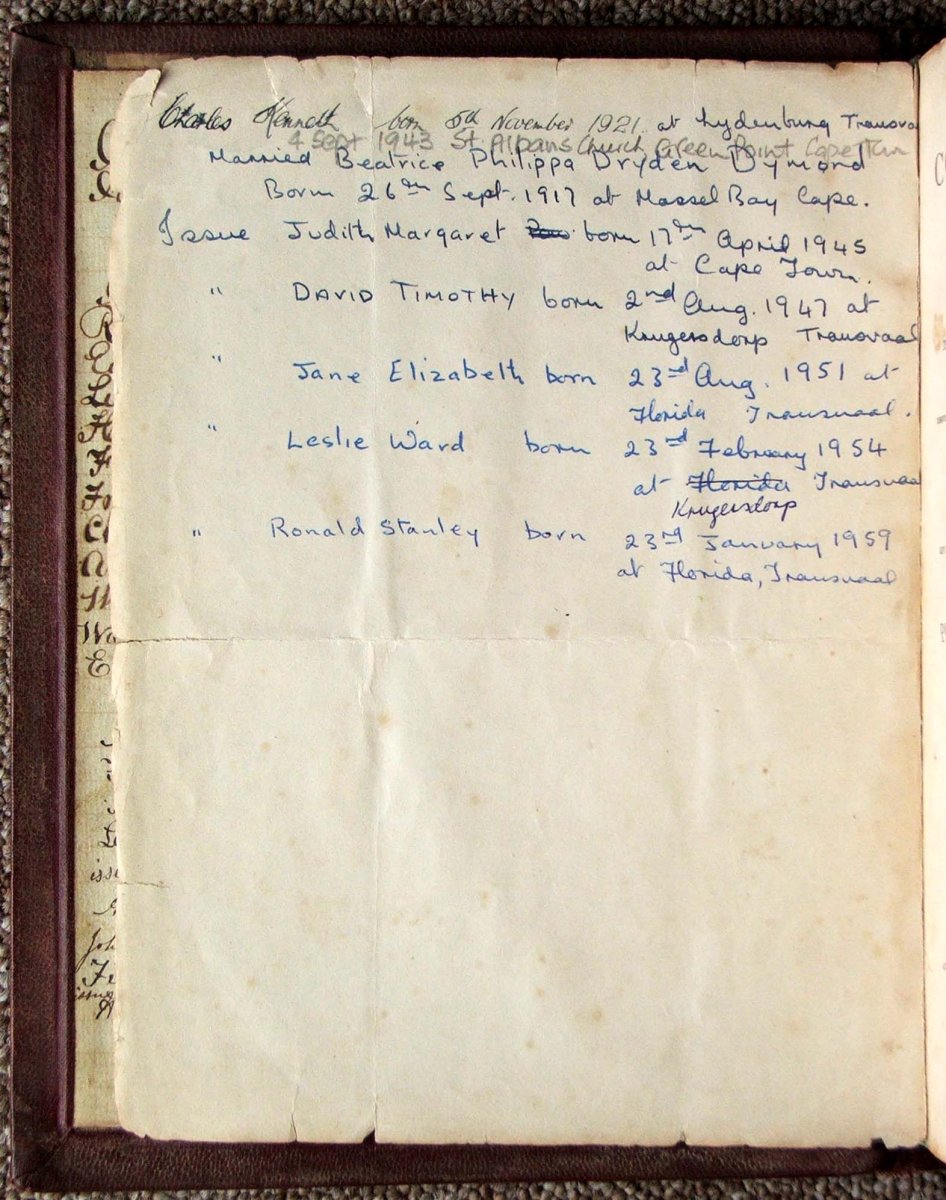 Charles Kenneth born 5th November 1921 at Lydenburg Transva
4 Sept 1943 St Albans Church Green Point Cape Town
Married Beatrice Philippa Dryden Dymond
Born 26th Sept. 1917 at Mossel Bay Cape.
Issue Judith Margaret born 17th April 1945
at Cape Town.
" DAVID TIMOTHY born 2nd Aug. 1947 at
Krugersdorp Transvaal
" Jane Elizabeth born 23rd Aug. 1951 at
Florida Transvaal.
" Leslie Ward born 23rd February 1954
at Florida Transvaal
Krugersdorp
" Ronald Stanley born 23rd January 1959
at Florida, Transvaal